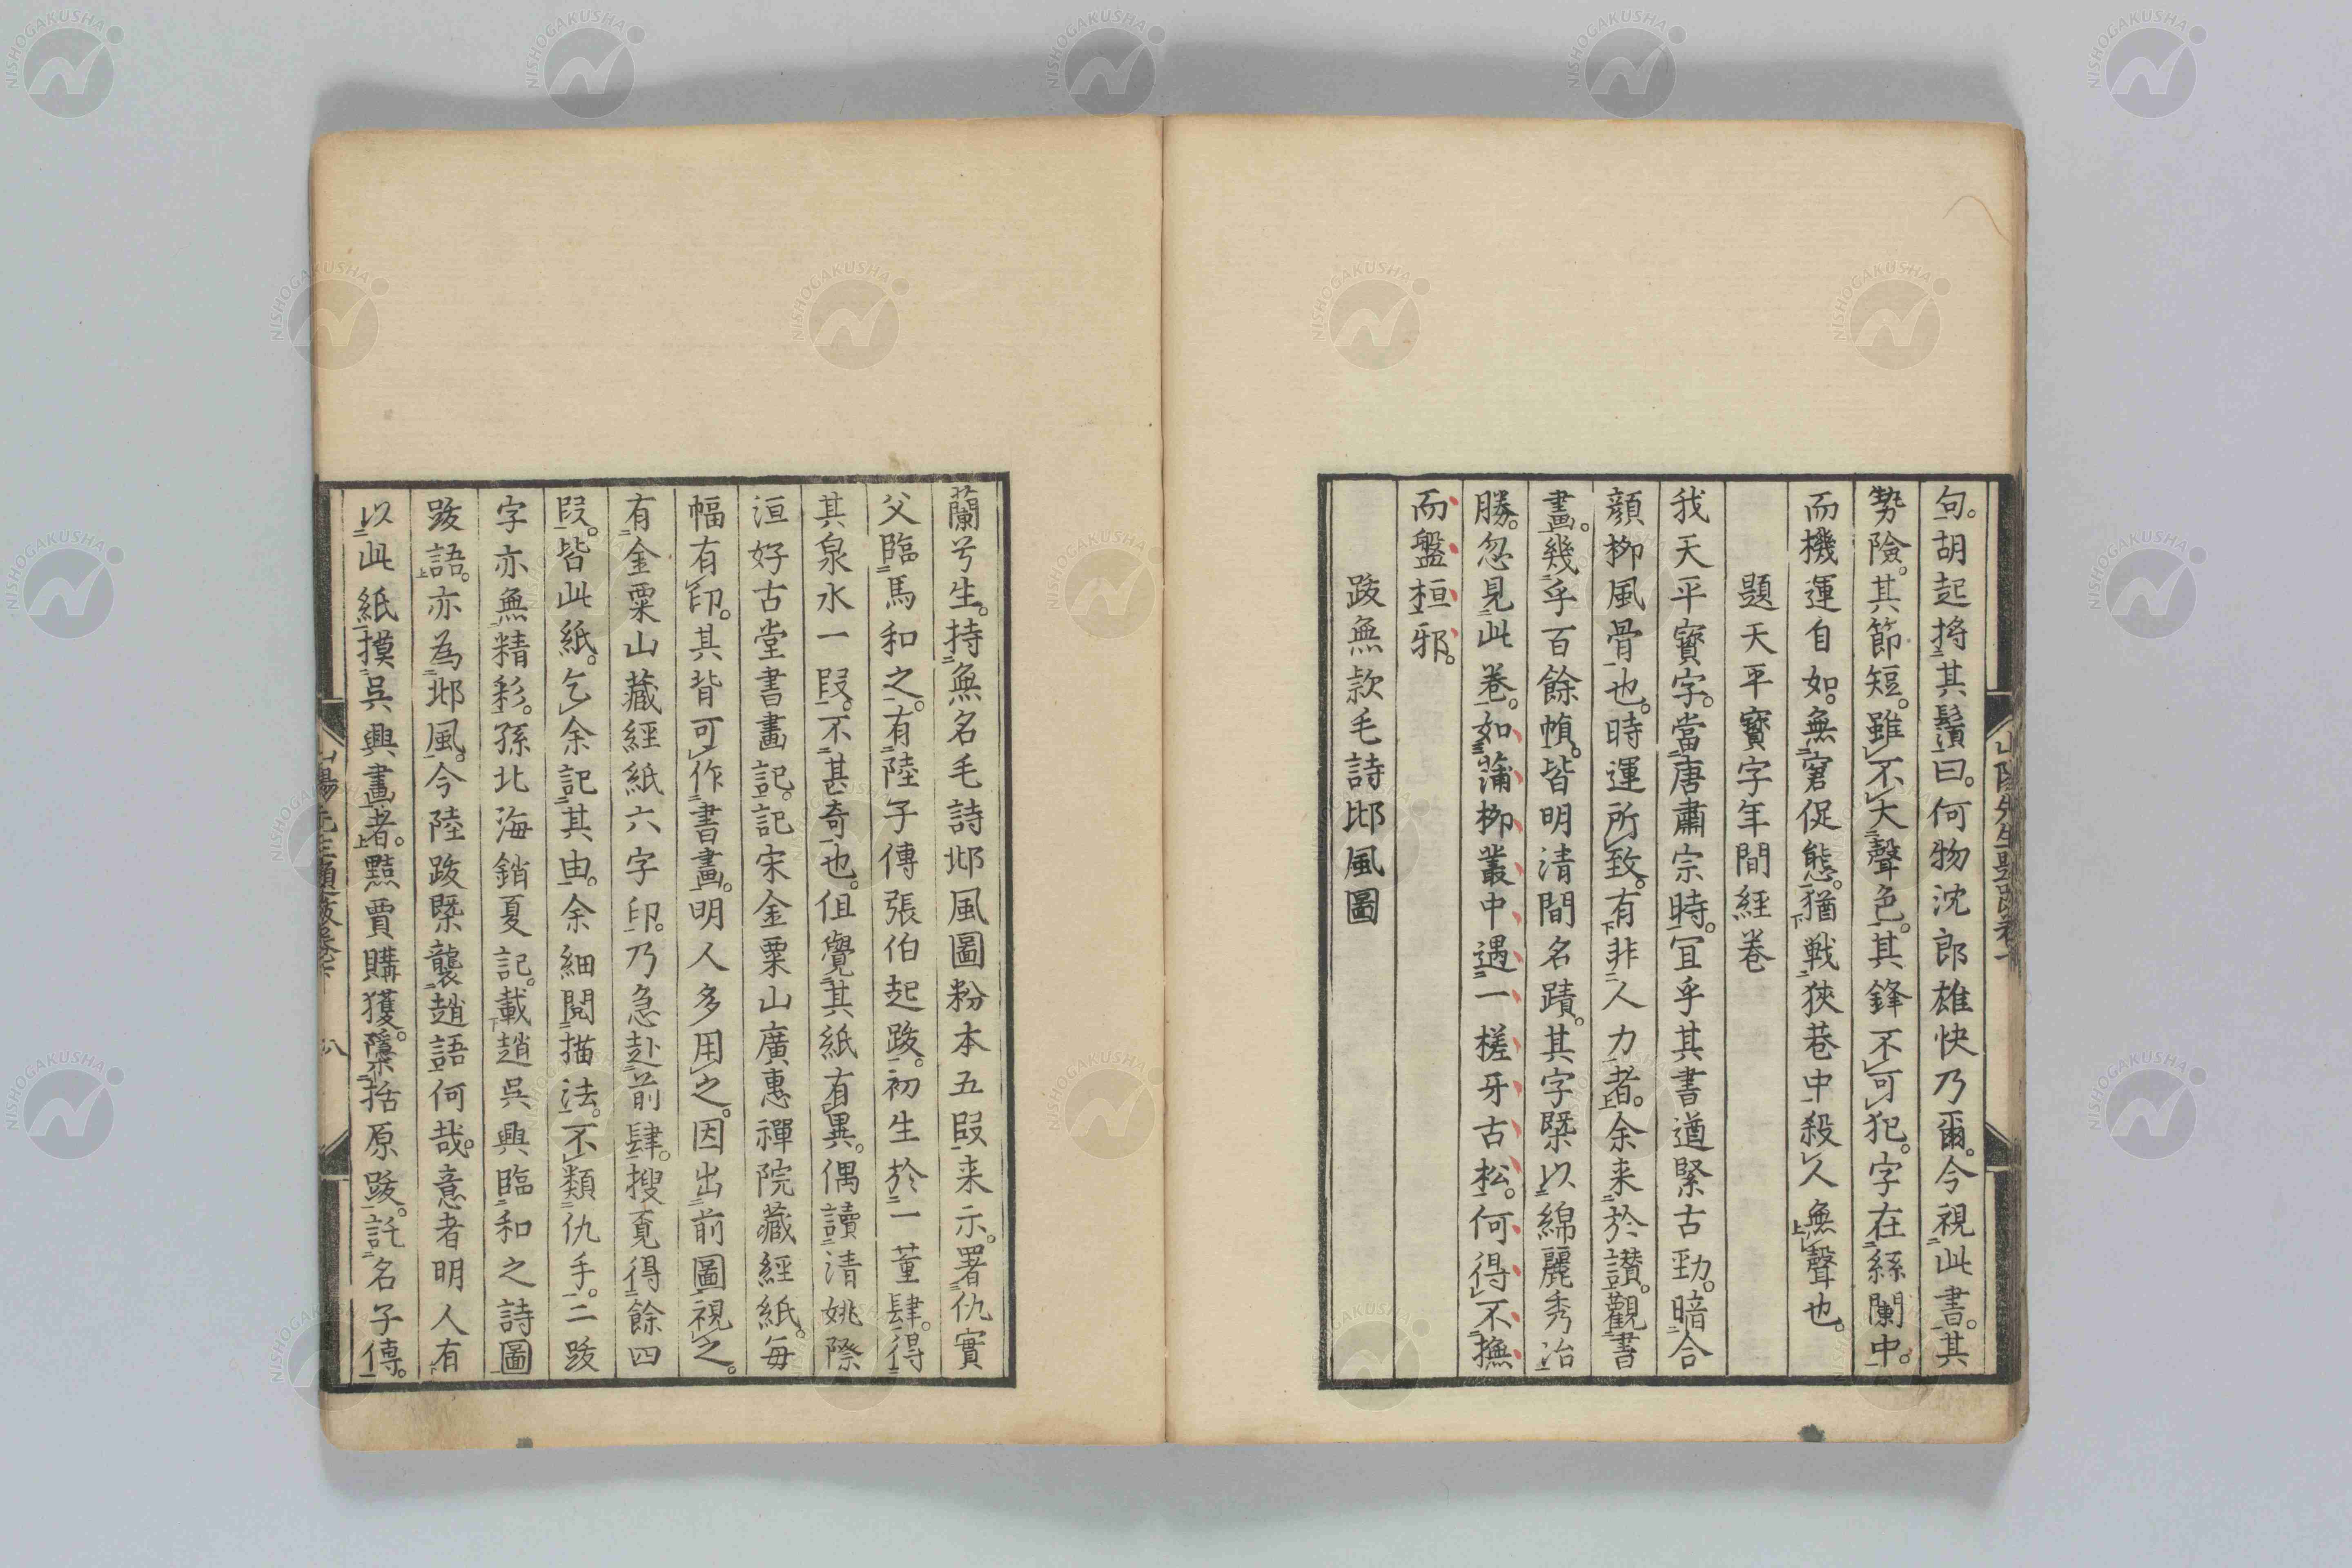 句。胡起将其鬚曰。何物沈郎雄快乃爾。今視此書。其
勢險。其節短。雖不大聲色。其鋒不可犯。字在絲闌中。
而機運自如。無窘促態。猶戦狹巷中殺人無聲也。
題天平寶字年間經卷
我天平寶字。當唐肅宗時。宜乎其書遒緊古勁。暗合
顔栁風骨也。時運所致。有非人力者。余来於讃。觀書
畫。幾乎百餘幀。皆明清間名蹟。其字槩以綿麗秀冶
勝。忽見此卷。如蒲栁叢中遇一槎牙古松。何得不撫
而盤桓邪。
跋無款毛詩邶風圖
蘭兮生。持無名毛詩邶風圖粉本五段来示。署仇實
父臨馬和之。有陸子傳張伯起跋。初生於一董肆。得
其泉水一段。不甚奇也。但覺其紙有異。偶讀清姚際
洹好古堂書畫記。記宋金粟山廣惠禪院藏經紙。每
幅有印。其背可作書畫。明人多用之。因出前圖視之。
有金粟山藏經紙六字印。乃急赴前肆。搜覓得餘四
段。皆此紙。乞余記其由。余細閲描法。不類仇手。二跋
字亦無精彩。孫北海銷夏記。載趙吳興臨和之詩圖
跋語。亦為邶風。今陸跋槩襲趙語何哉。意者明人有
以此紙摸吳興畫者。黠賈購獲。隱括原跋。託名子傳。
山陽先生題跋卷下
八
NISHOGAKUSHA